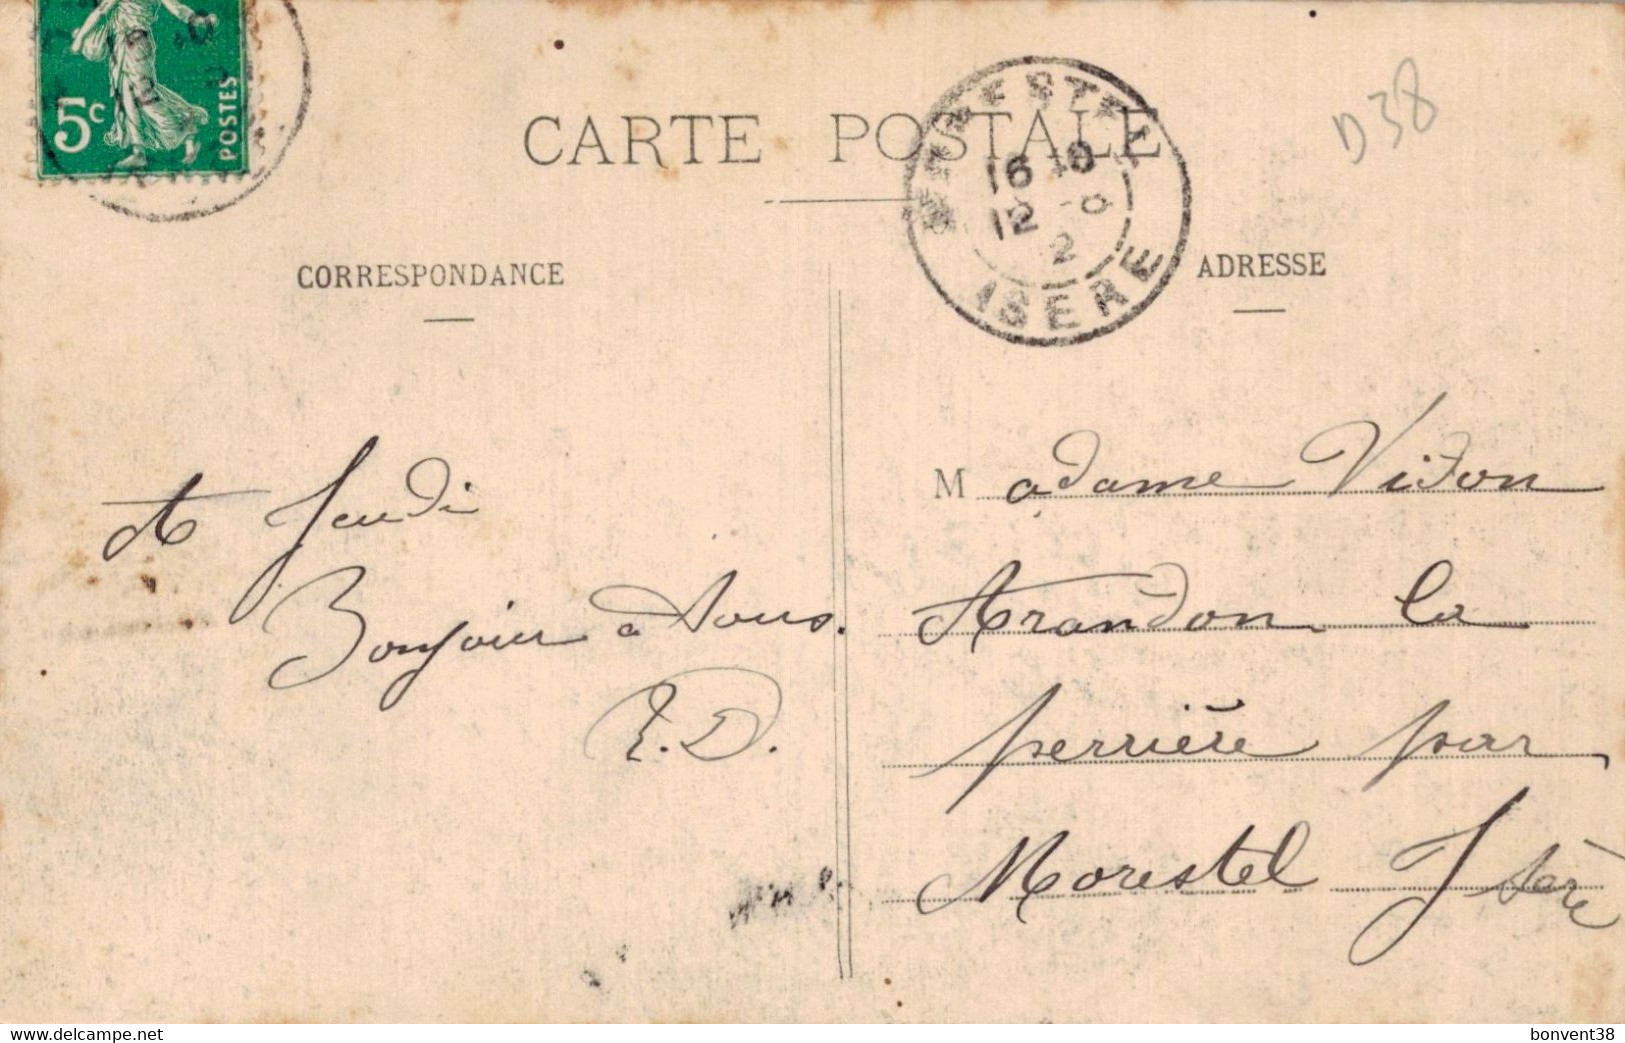 5c
POSTES
CARTE POSTALE
D38
MORESTEL
16 10
12 2
ISERE
CORRESPONDANCE
ADRESSE
A Jeudi
Bonjour à Vous.
E.D.
Madame Vidon
Arandon la
perrière par
Morestel Isère
Delcampe.net
bonvent38